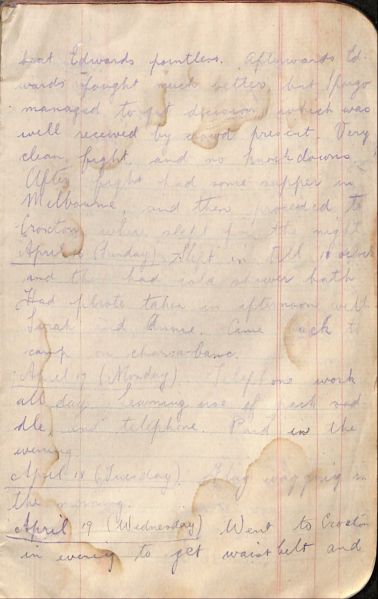 beat Edwards pointless. Afterwards Ed-
wards fought much better, but
managed to get decision which was
well received by crowd present. Very
clean fight and no knockdowns.
After fight had some supper in
Melbourne, and then proceeded to
Croxton where slept for the night
April 16 (Sunday) Slept in till 10 oclock
and then had cold shower bath
Had photo taken in afternoon with
Sarah and Annie. Came back to
camp on char-a-banc.
April 17 (Monday). Telephone work
all day. evening use of pack sad
dle, and telephone. Paid in the
evening
April 18 (Tuesday). Flag wagging in
the morning.
April 19 (Wednesday) Went to Croxton
in evening to get waist belt and